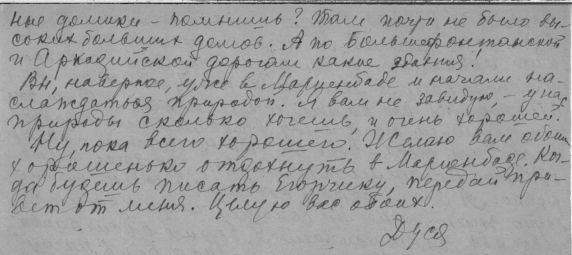 ные домики – помнишь? Там почти не было вы-
соких больших домов. А по Большефонтанской
и Аркадийской дорогам какие здания!
Вы, наверное, уже в Мариенбаде и начали на-
слаждаться природой. Я вам не завидую, – у нас
природы сколько хочешь, и очень хорошей.
Ну, пока всего хорошего. Желаю вам обоим
хорошенько отдохнуть в Мариенбаде. Ког-
да будешь писать Егорчику, передай при-
вет от меня. Целую вас обоих.
Дуся